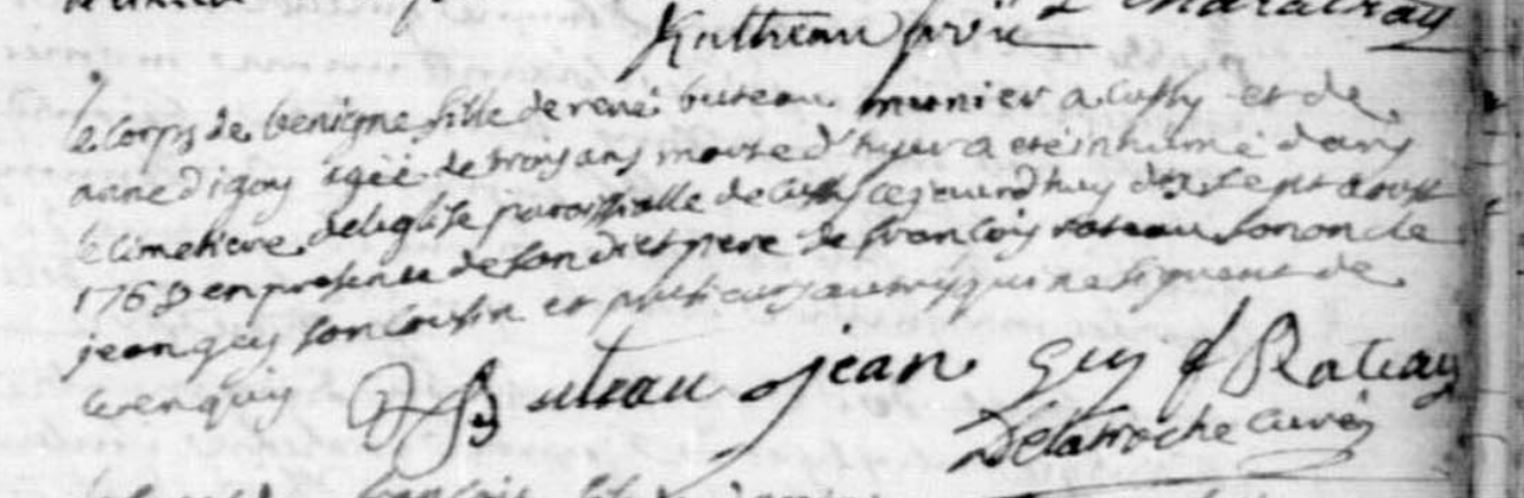 le corps de benigne fille de rené buteau munier a Cussy et de
anne digoy agée de trois ans morte d'hyer a eté inhumé dans
le cimetiere de leglise paroissialle de Cussy cejourdhuy dix sept aoust
1769 en presence de son dict pere de françois rateau son oncle
jean guy son cousin et plusieurs autres qui ne signent de
ce enquis Buteau jean Guy f Rateau
Delaroche curé